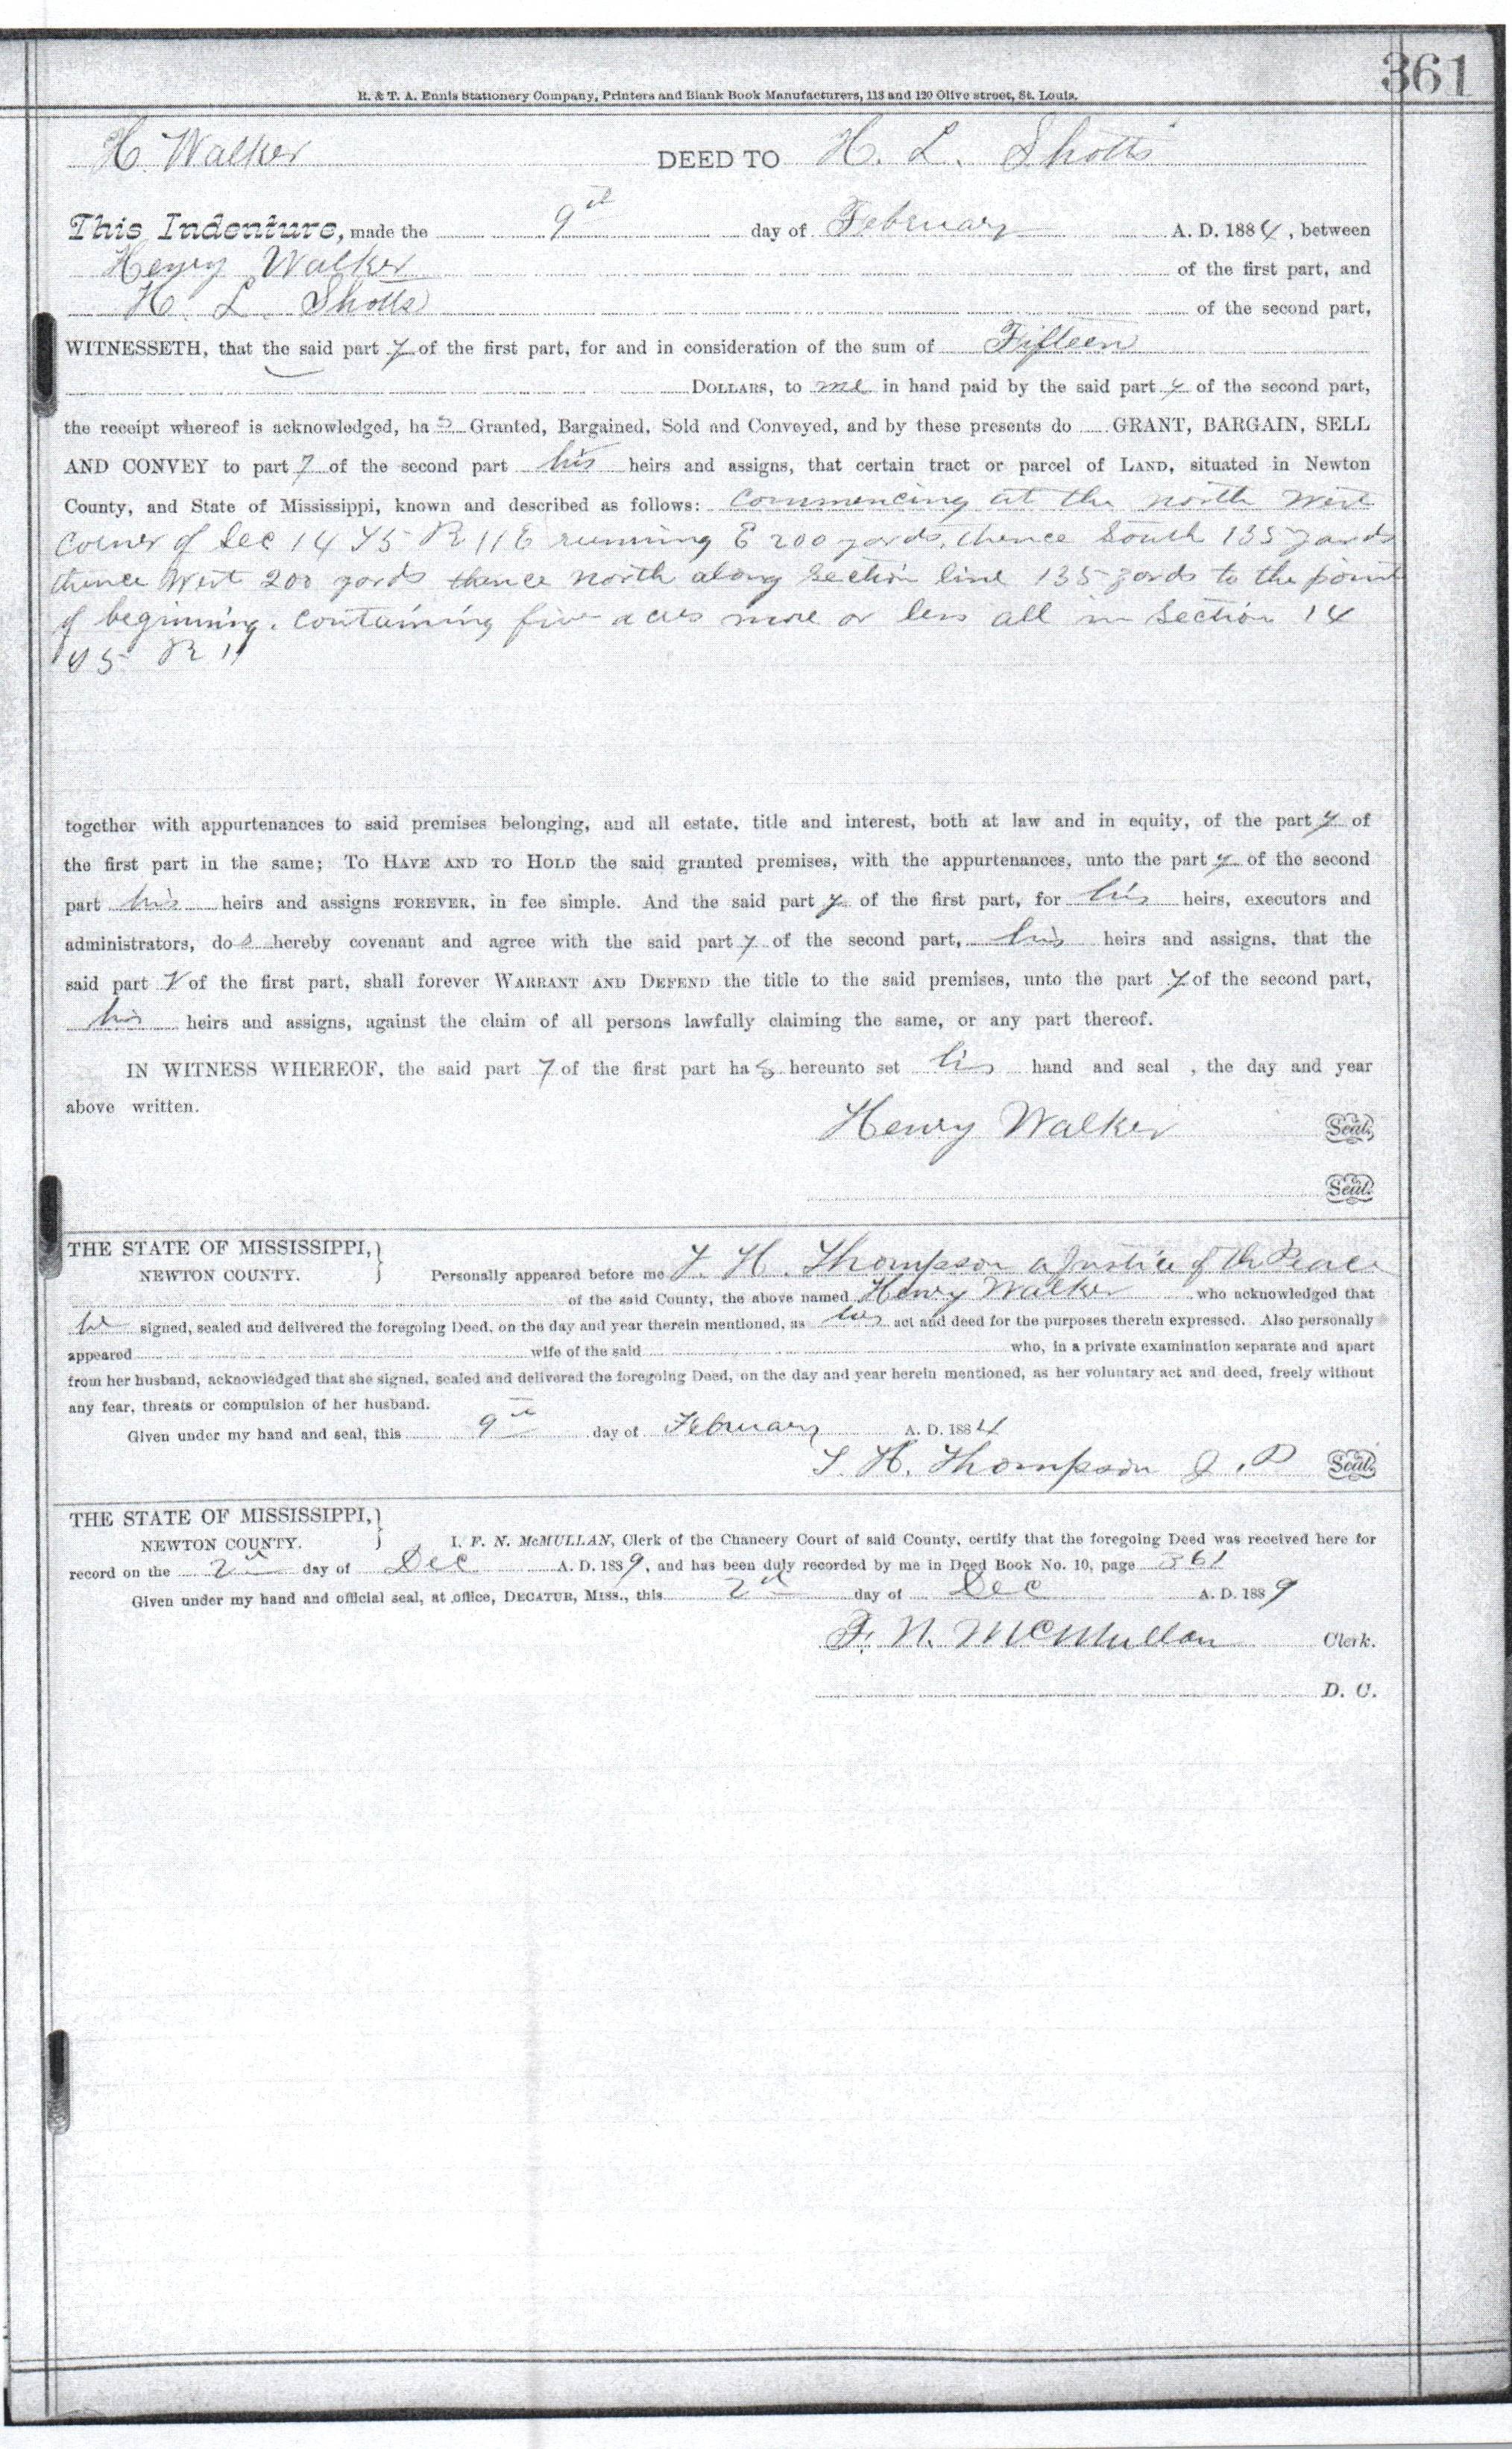 361
R. & T. A. Ennis Stationery Company, Printers and Blank Book Manufacturers, 118 and 120 Olive street, St. Louis.
H. Walker DEED TO H. L. Shotts
This Indenture, made the 9th day of February A. D. 1884, between
Henry Walker of the first part, and
H. L. Shotts of the second part,
WITNESSETH, that the said part y of the first part, for and in consideration of the sum of Fifteen
DOLLARS, to me in hand paid by the said part y of the second part,
the receipt whereof is acknowledged, ha s Granted, Bargained, Sold and Conveyed, and by these presents do GRANT, BARGAIN, SELL
AND CONVEY to part y of the second part his heirs and assigns, that certain tract or parcel of LAND, situated in Newton
County, and State of Mississippi, known and described as follows: Commencing at the north West
Corner of Sec 14 T5 R 11 E running E 200 yards, thence South 135 yards
thence West 200 yards thence north along section line 135 yards to the point
of beginning. Containing five acres more or less all in Section 14
T5 R 11
together with appurtenances to said premises belonging, and all estate, title and interest, both at law and in equity, of the part y of
the first part in the same; TO HAVE AND TO HOLD the said granted premises, with the appurtenances, unto the part y of the second
part his heirs and assigns FOREVER, in fee simple. And the said part y of the first part, for his heirs, executors and
administrators, do s hereby covenant and agree with the said part y of the second part, his heirs and assigns, that the
said part y of the first part, shall forever WARRANT AND DEFEND the title to the said premises, unto the part y of the second part,
his heirs and assigns, against the claim of all persons lawfully claiming the same, or any part thereof.
IN WITNESS WHEREOF, the said part y of the first part ha s hereunto set his hand and seal , the day and year
above written.
Henry Walker Seal.
Seal.
THE STATE OF MISSISSIPPI,
NEWTON COUNTY. Personally appeared before me T. H. Thompson a Justice of the Peace
of the said County, the above named Henry Walker who acknowledged that
he signed, sealed and delivered the foregoing Deed, on the day and year therein mentioned, as his act and deed for the purposes therein expressed. Also personally
appeared wife of the said who, in a private examination separate and apart
from her husband, acknowledged that she signed, sealed and delivered the foregoing Deed, on the day and year herein mentioned, as her voluntary act and deed, freely without
any fear, threats or compulsion of her husband.
Given under my hand and seal, this 9th day of February A. D. 1884
T. H. Thompson J. P Seal.
THE STATE OF MISSISSIPPI,
NEWTON COUNTY. I, F. N. McMULLAN, Clerk of the Chancery Court of said County, certify that the foregoing Deed was received here for
record on the 2nd day of Dec A. D. 1889, and has been duly recorded by me in Deed Book No. 10, page 361
Given under my hand and official seal, at office, DECATUR, MISS., this 2nd day of Dec A. D. 1889
F. N. McMullan Clerk.
D. C.